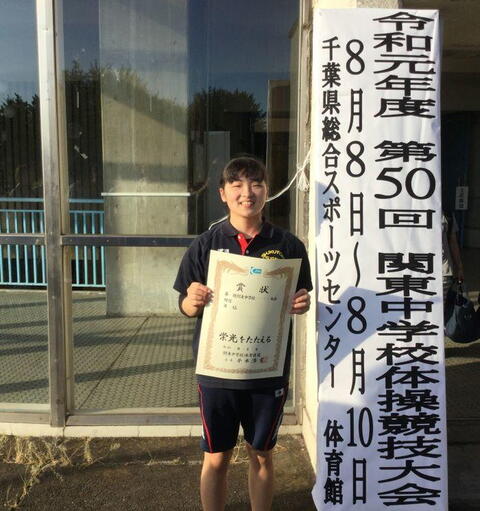 令和元年度 第50回 関東中学校体操競技大会
8月8日～8月10日
千葉県総合スポーツセンター 体育館
賞状
栄光をたたえる